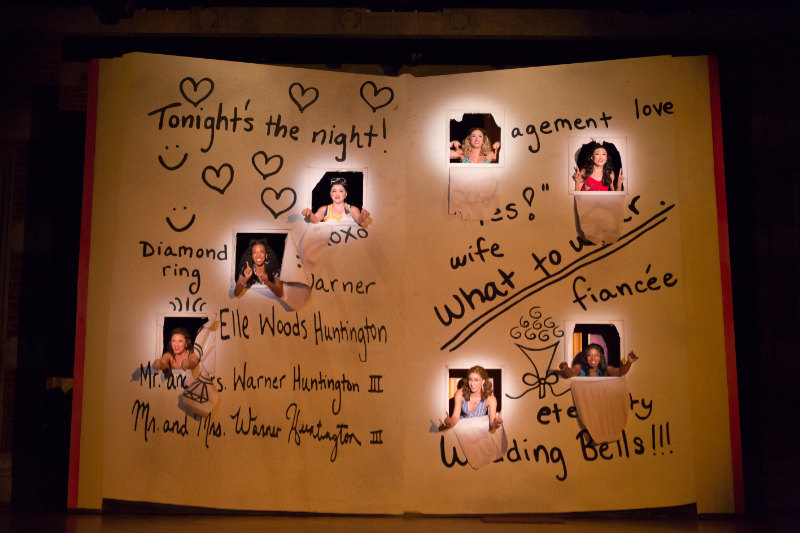 Tonight's the night!
XOXO
Diamond
ring
Warner
Elle Woods Huntington
Mr. and s. Warner Huntington III
Mr. and Mrs. Warner Huntington III
agement love
es!"
wife
what to
fiancée
Bells!!!